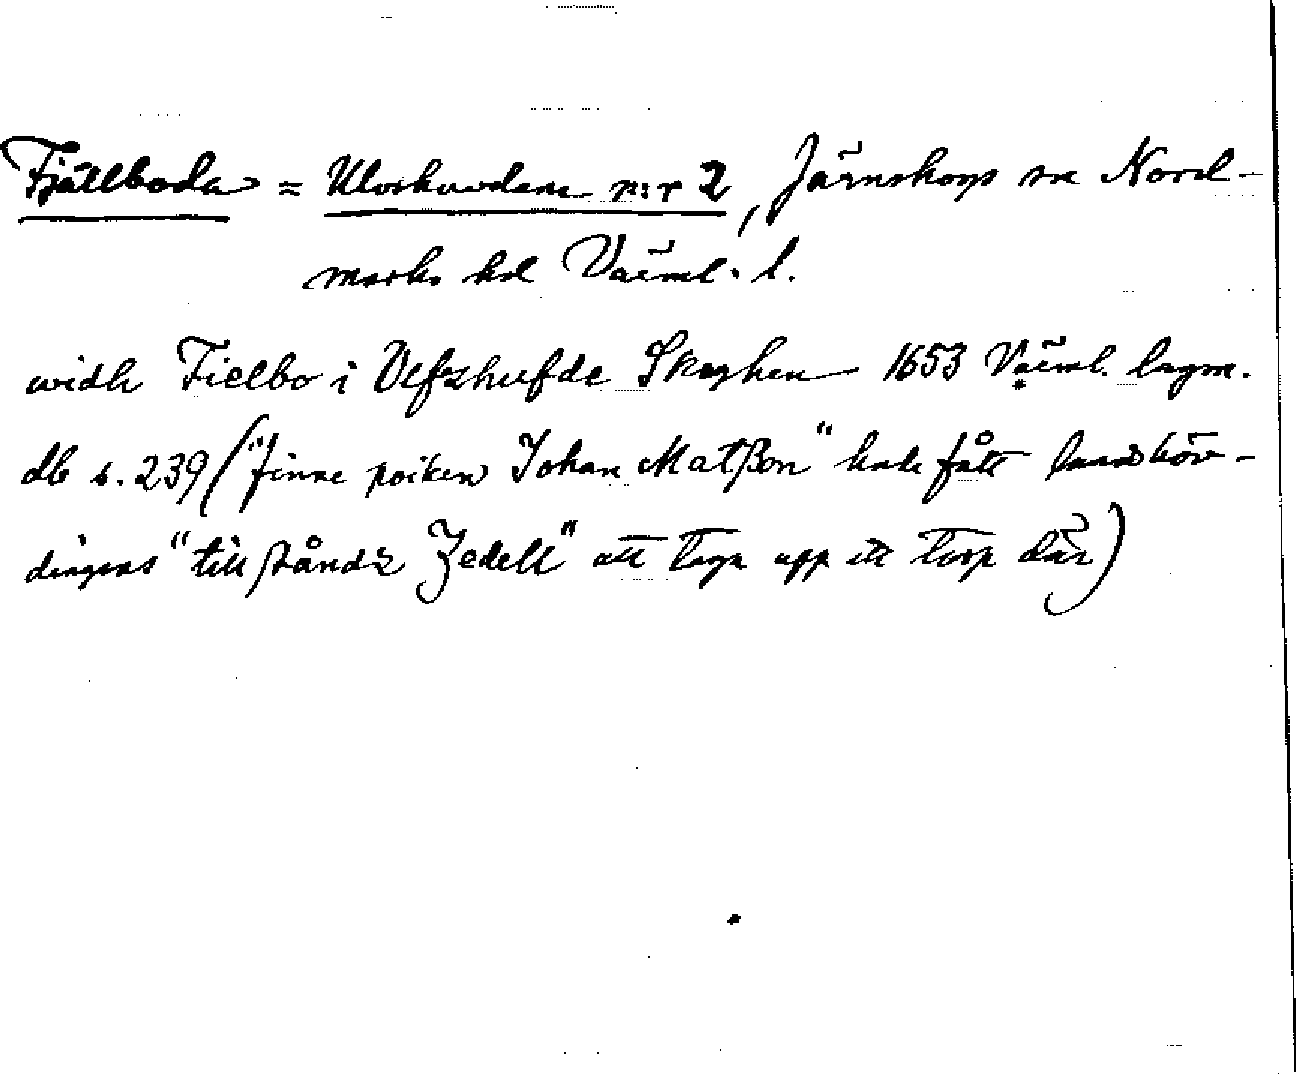 Fjällboda = Ulvhuvdane n:r 2, Järnskogs sn Nord-
marks hd Värml. l.
widh Fielbo i Vlfzhufde Skoghen 1653 Värml. lagm.
db s. 239 ("finne poiken Johan Matßon" hade fått landshöv-
dingens "tillståndz Zedell" att taga upp ett torp där)